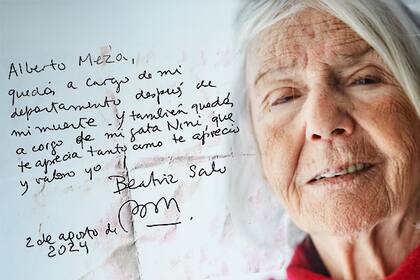 Alberto Meza,
quedás a cargo de mi
departamento después de
mi muerte y también quedás
a cargo de mi gata Niní, que
te aprecia tanto como te aprecio
y valoro yo
Beatriz Sarlo
2 de agosto de
2024